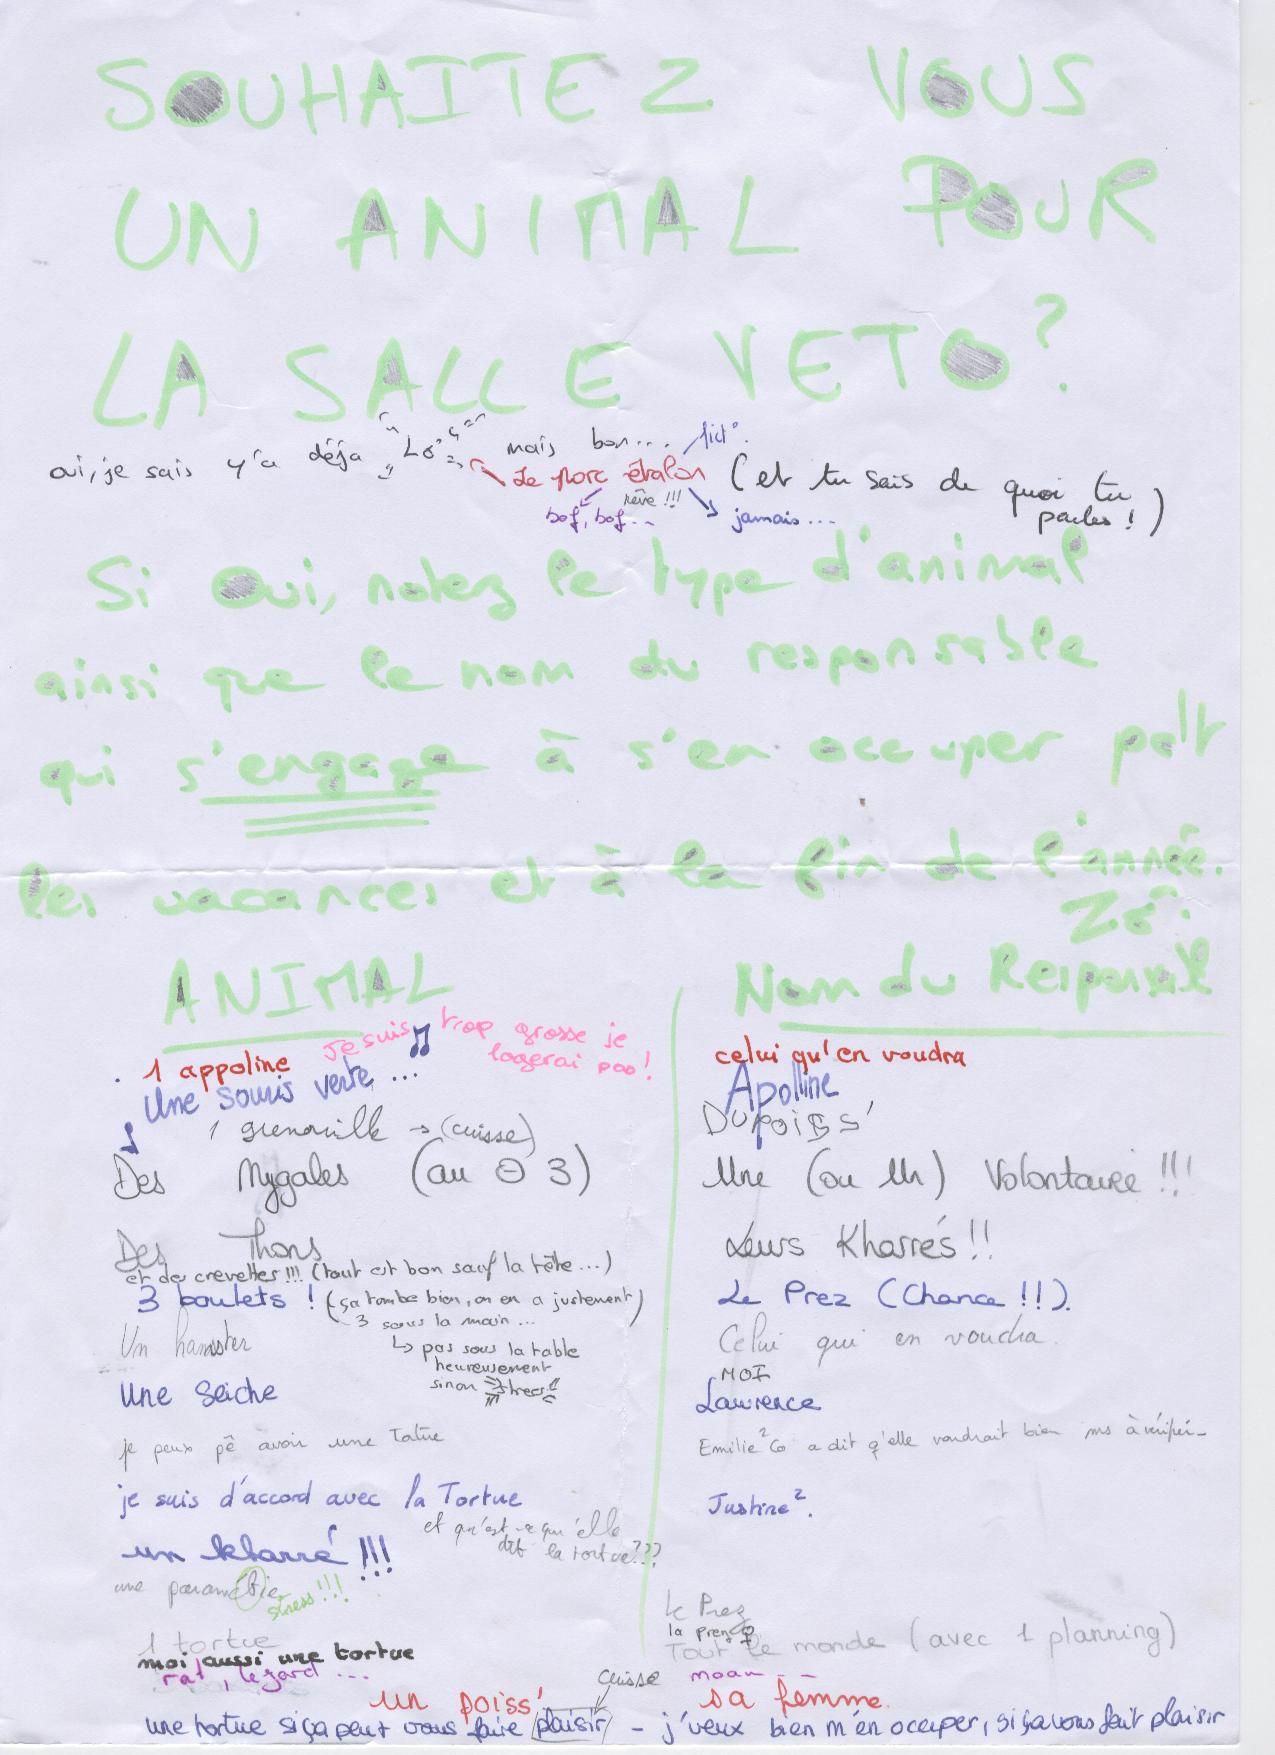 SOUHAITEZ VOUS
UN ANIMAL POUR
LA SALLE VETO?
oui, je sais y'a déja Lo mais bon... fict°.
Le porc étalon (et tu sais de quoi tu parles!)
rêve !!!
bof, bof... jamais...
Si oui, notez le type d'animal
ainsi que le nom du responsable
qui s'engage à s'en occuper pdt
les vacances et à la fin de l'année.
Zo.
ANIMAL Nom du Responsable
Je suis trop grosse je
logerai pas!
1 appoline celui qu'en voudra
Une souris verte ... Apolline
1 grenouille → (cuisse) Dupoiss'
Des Mygales (au ⊖ 3) Une (ou Un) Volontaire !!!
Des Thons Leurs Kharrés!!
et des crevettes!!! (tout est bon sauf la tête...)
3 boulets ! (ça tombe bien, on en a justement Le Prez (Chance !!).
3 sous la main...)
Un hamster Celui qui en voudra.
↳ pas sous la table
heureusement
sinon stress!!
MOI
Une Seiche Lawrence
je peux pê avoir une Tortue Emilie²Co a dit q'elle voudrait bien ms à vérifier
je suis d'accord avec la Tortue Justine².
et qu'est-ce qu'elle
dit la tortue???
un kharré !!!
une paramétie Le Prez
stress!!!
la prenø
1 tortue Tout le monde (avec 1 planning)
moi aussi une tortue
rat, lézard ... moau - -
un poiss' sa femme.
cuisse
une tortue si ça peut vous faire plaisir - j'veux bien m'en occuper, si ça vous fait plaisir